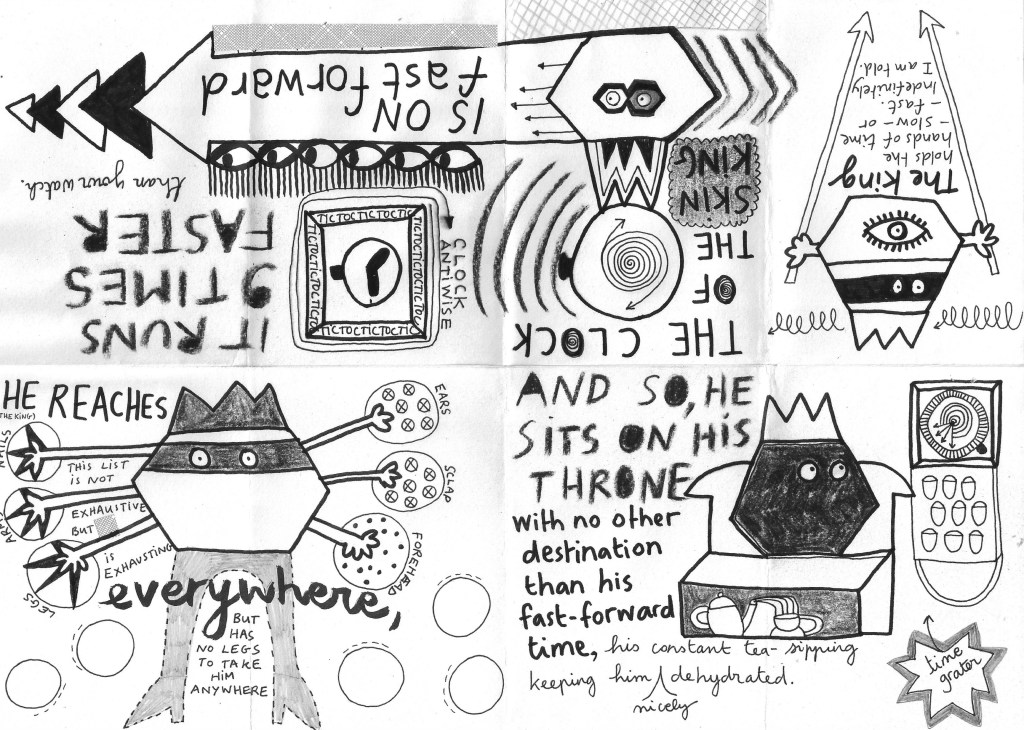 The King
holds the
hands of time
- slow - or
- fast.
Indefinitely
I am told.
THE CLOCK
OF
THE
SKIN
KING
IS ON
fast forward
IT RUNS
9 TIMES
FASTER
than your watch.
CLOCK
ANTIWISE
TICTOCTICTOCTIC
TICTOCTICTOCTIC
TICTOCTICTOC
TICTOCTICTOCTIC
HE REACHES
(THE KING)
NAILS
ARMS
LEGS
EARS
SCLAP
FOREHEAD
THIS LIST
IS NOT
EXHAUSTIVE
BUT
IS
EXHAUSTING
everywhere,
BUT
HAS
NO LEGS
TO TAKE
HIM
ANYWHERE
AND SO, HE
SITS ON HIS
THRONE
with no other
destination
than his
fast-forward
time, his constant tea-sipping
keeping him / dehydrated.
nicely
time
grater